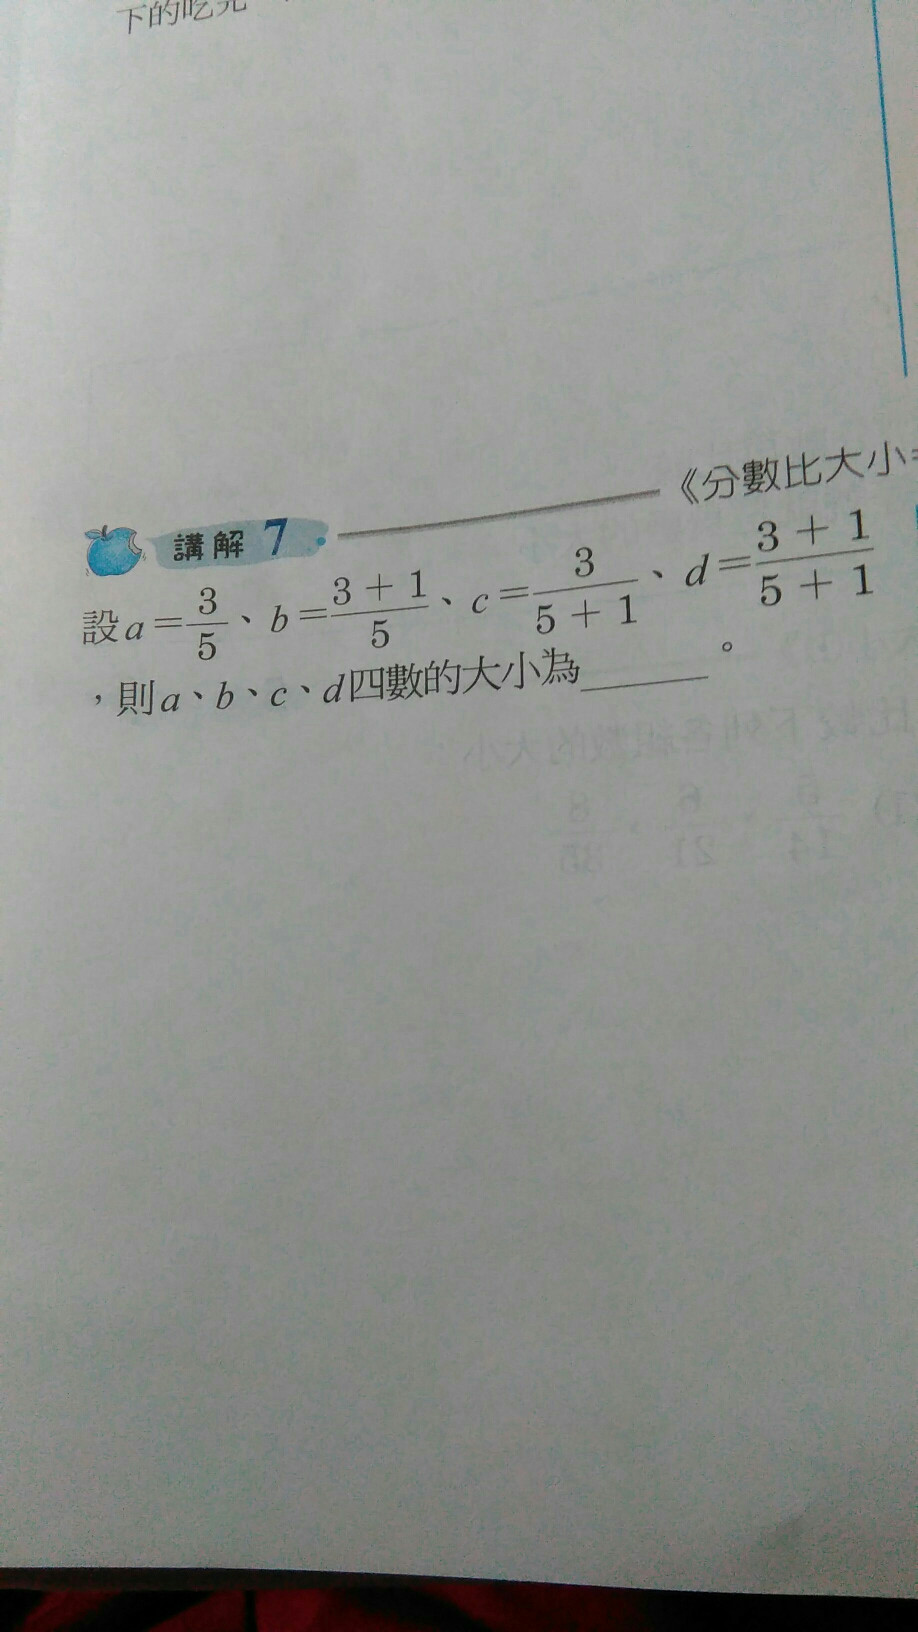 下的吃完
講解 7 《分數比大小
設a=3/5、b=(3+1)/5、c=3/(5+1)、d=(3+1)/(5+1)
,則a、b、c、d四數的大小為______。